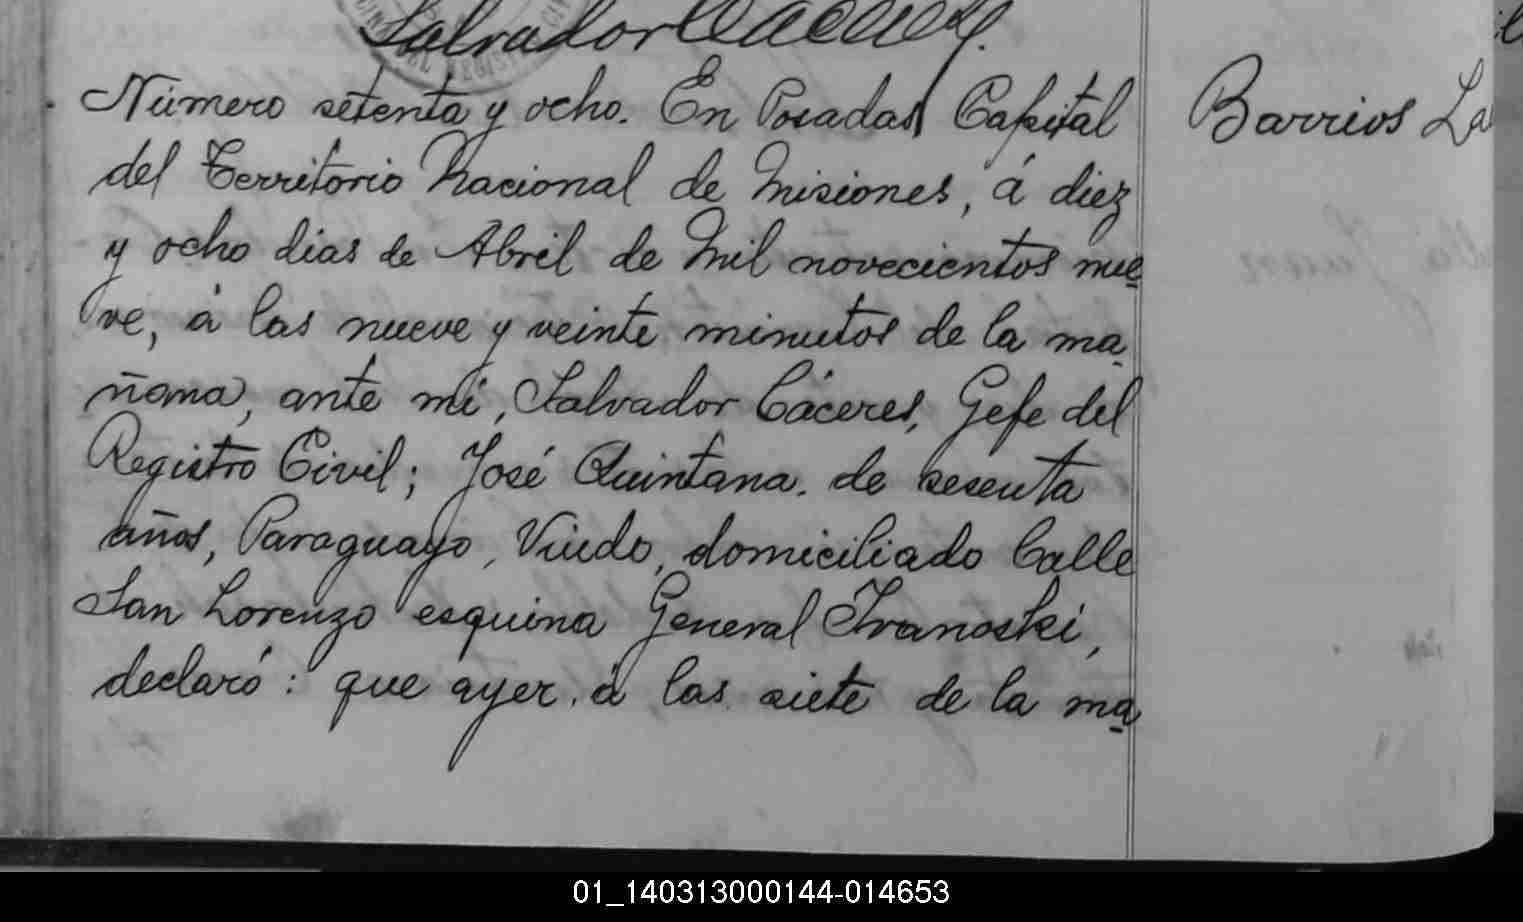 Salvador Cáceres.
Número setenta y ocho. En Posadas, Capital
Barrios La
del Territorio Nacional de Misiones, á diez
y ocho dias de Abril de Mil novecientos nue
ve, á las nueve y veinte minutos de la ma
ñana, ante mí, Salvador Cáceres, Gefe del
Registro Civil; José Quintana. de sesenta
años, Paraguayo, Viudo, domiciliado Calle
San Lorenzo esquina General Ivanoski,
declaró: que ayer. á las siete de la ma
01_140313000144-014653